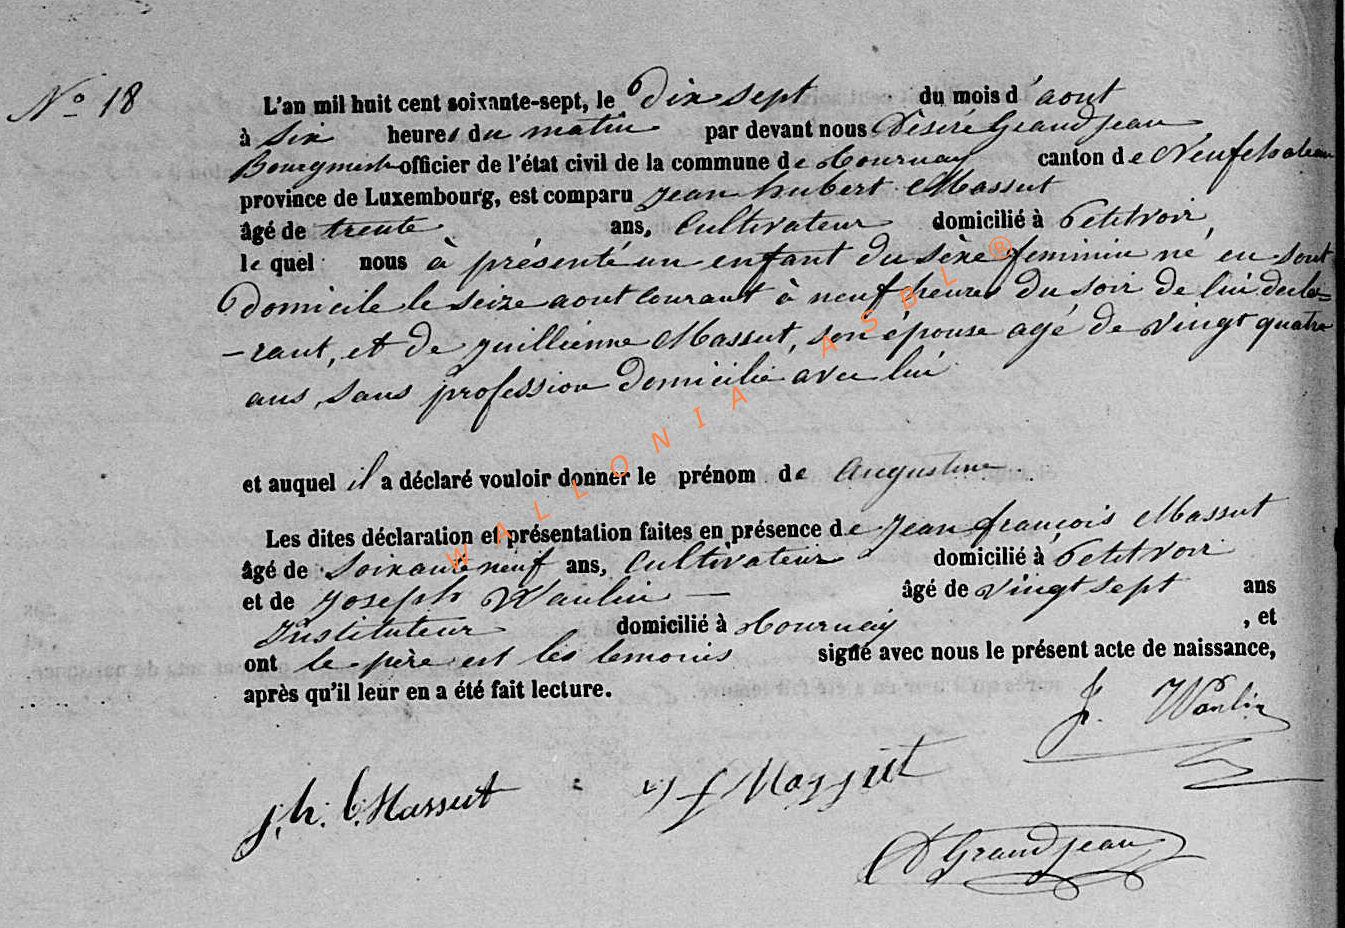 N° 18
L'an mil huit cent soixante-sept, le Dix sept du mois d'aout
à Six heures du matin par devant nous Désiré Grandjean
Bourgmestre officier de l'état civil de la commune de Tournay canton de Neufchateau
province de Luxembourg, est comparu Jean hubert Massut
âgé de trente ans, Cultivateur domicilié à Petitvoir,
le quel nous à présenté un enfant du sèxe feminin né en sont
domicile le seize aout courant à neuf heures du soir de lui décla=
-rant, et de juillienne Massut, son épouse agé de vingt quatre
ans, sans profession domicilié avec lui
et auquel il a déclaré vouloir donner le prénom de Augustine.
Les dites déclaration et présentation faites en présence de Jean françois Massut
âgé de Soixante neuf ans, Cultivateur domicilié à Petitvoir
et de Joseph Wanlin — âgé de vingt sept ans
Instituteur domicilié à Tournay, et
ont le père est les temoins signé avec nous le présent acte de naissance,
après qu'il leur en a été fait lecture.
J. Wanlin
J. h. Massut
j f Massut
D Grandjean
WALLONIA ASBL ®